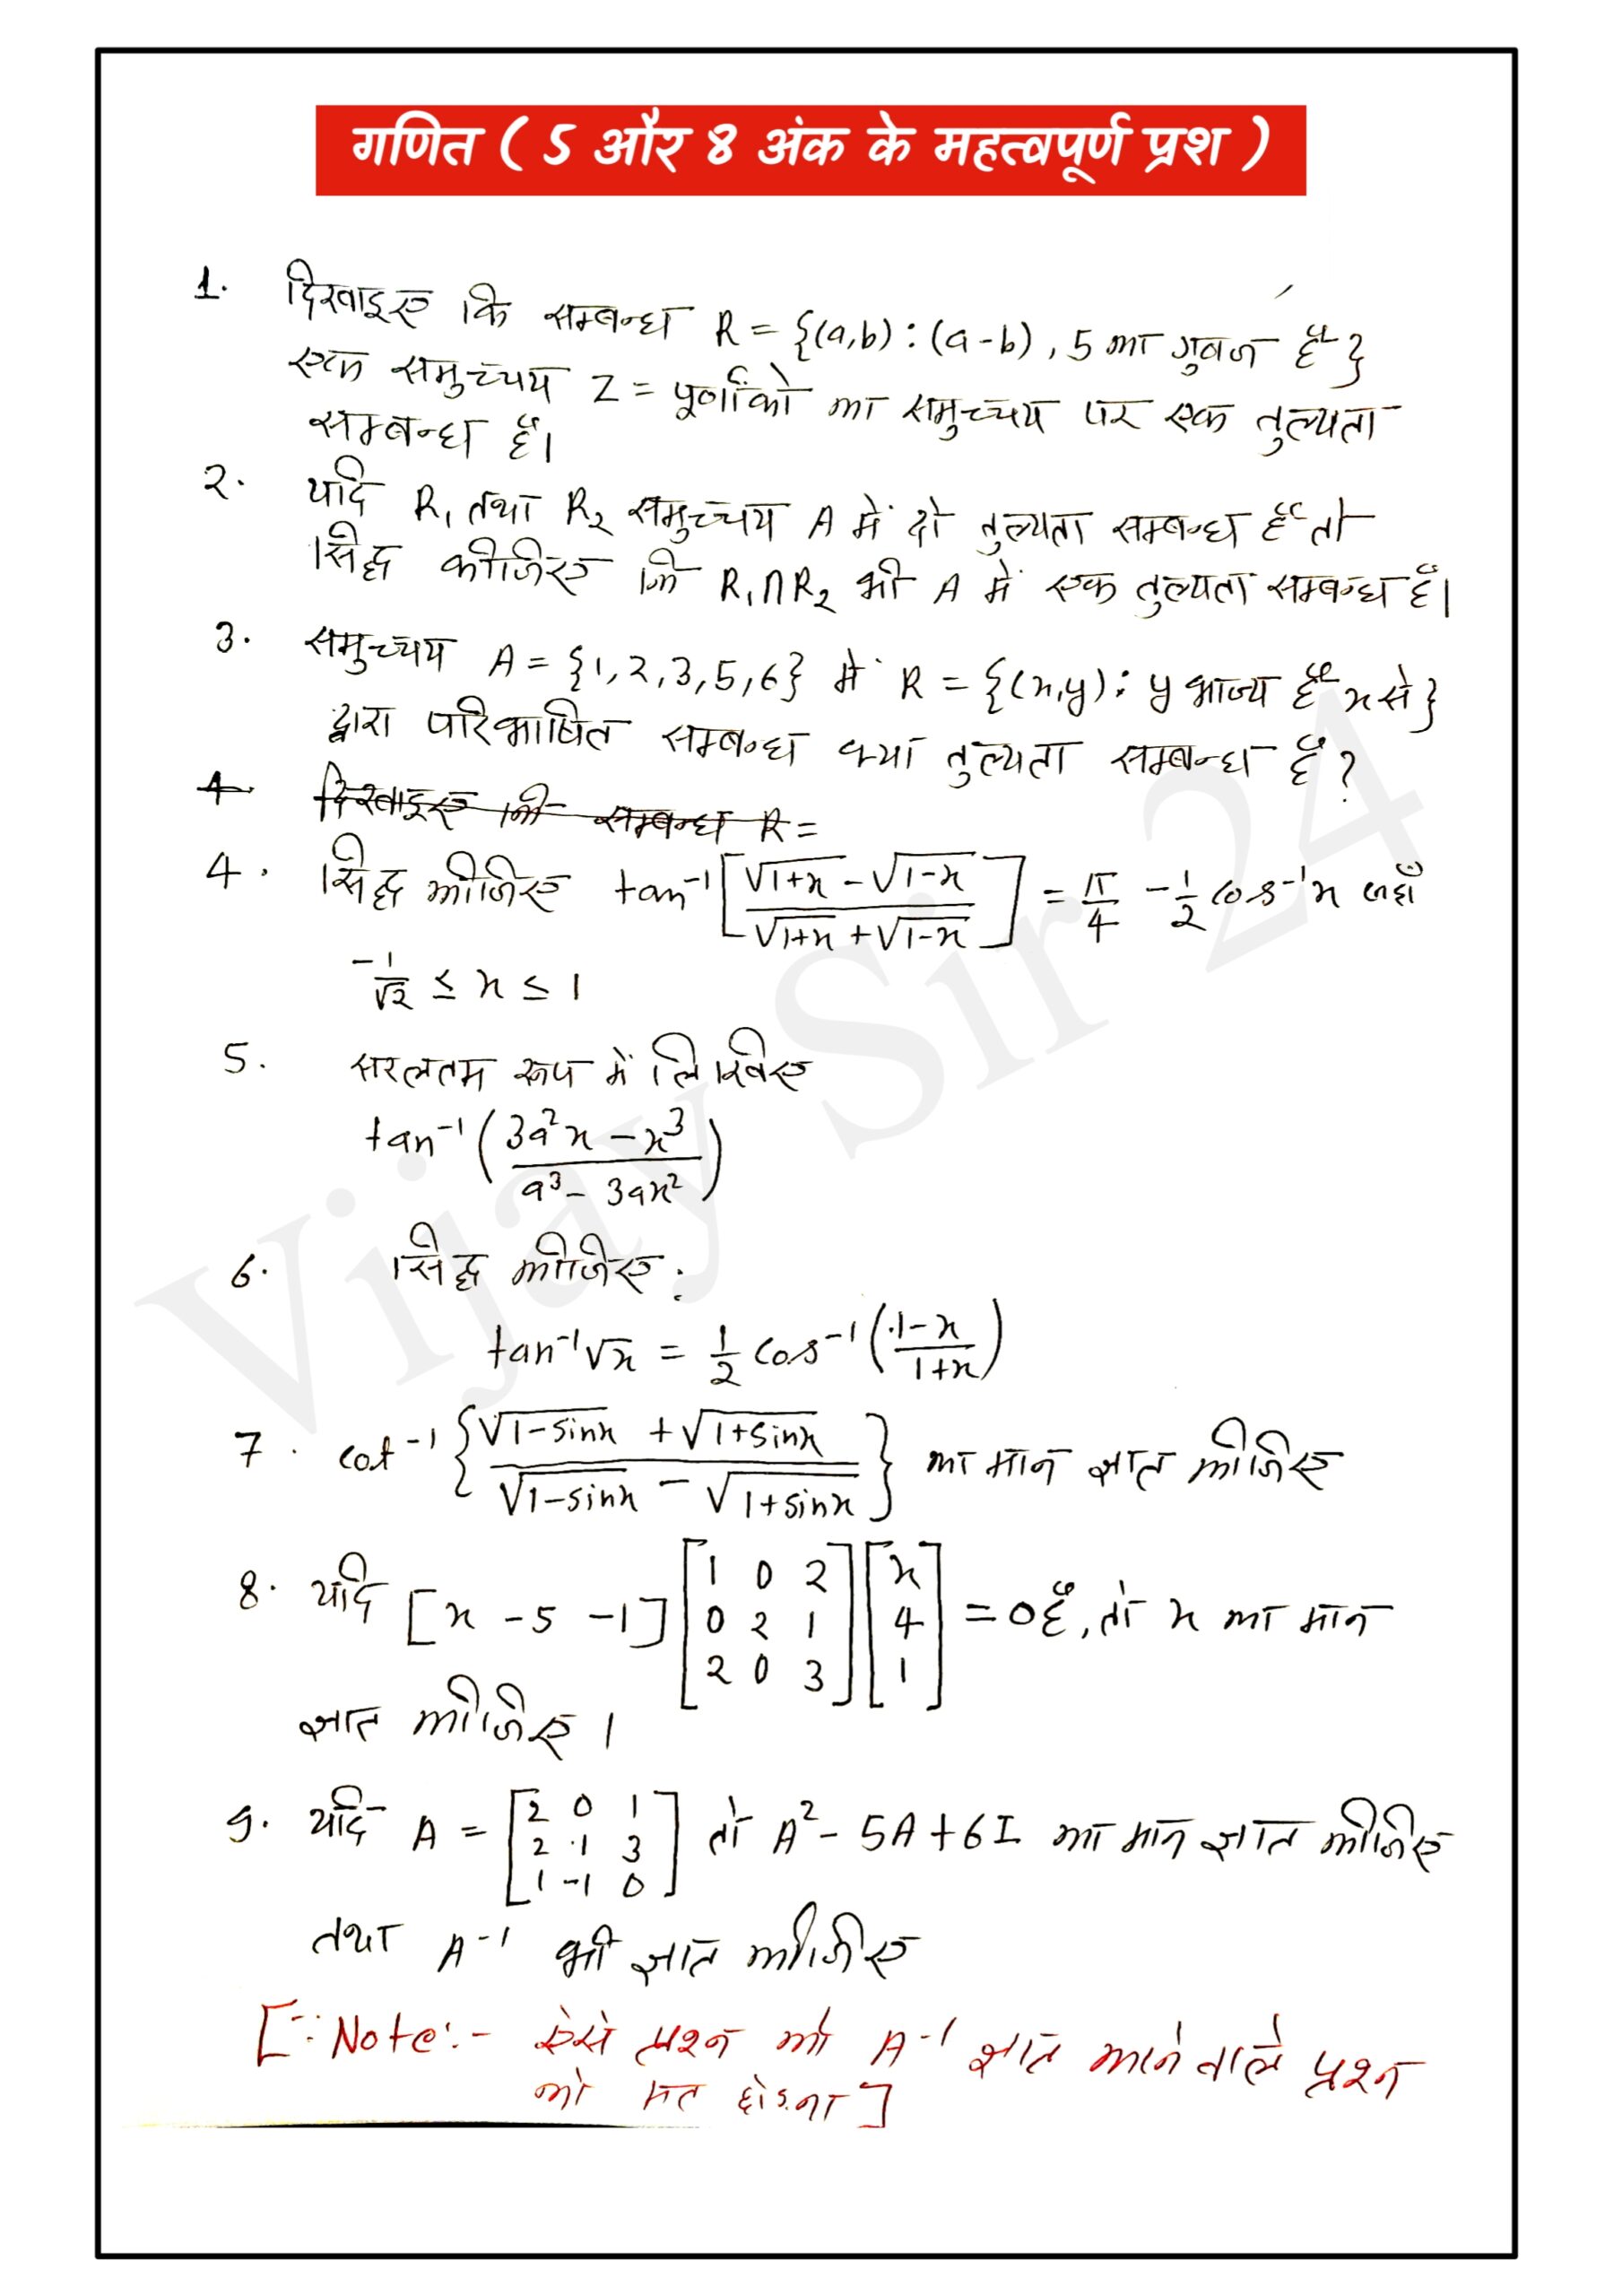 गणित ( 5 और 8 अंक के महत्वपूर्ण प्रश )
1. दिखाइए कि सम्बन्ध R = {(a,b) : (a-b), 5 का गुणज है}
एक समुच्चय Z = पूर्णांको का समुच्चय पर एक तुल्यता
सम्बन्ध है।
2. यदि R₁ तथा R₂ समुच्चय A में दो तुल्यता सम्बन्ध हैं तो
सिद्ध कीजिए कि R₁∩R₂ भी A में एक तुल्यता सम्बन्ध है।
3. समुच्चय A = {1, 2, 3, 5, 6} में R = {(x,y) : y भाज्य है x से}
द्वारा परिभाषित सम्बन्ध क्या तुल्यता सम्बन्ध है ?
4 दिखाइए कि सम्बन्ध R =
4. सिद्ध कीजिए tan⁻¹[(√1+x - √1-x)/(√1+x + √1-x)] = π/4 - 1/2 cos⁻¹x जहाँ
-1/√2 ≤ x ≤ 1
5. सरलतम रूप में लिखिए
tan⁻¹((3a²x - x³)/(a³ - 3ax²))
6. सिद्ध कीजिए :
tan⁻¹√x = 1/2 cos⁻¹((1-x)/(1+x))
7. cot⁻¹{(√1-sinx + √1+sinx)/(√1-sinx - √1+sinx)} का मान ज्ञात कीजिए
8. यदि [x -5 -1] [1 0 2; 0 2 1; 2 0 3] [x; 4; 1] = 0 है, तो x का मान
ज्ञात कीजिए ।
9. यदि A = [2 0 1; 2 1 3; 1 -1 0] तो A² - 5A + 6I का मान ज्ञात कीजिए
तथा A⁻¹ भी ज्ञात कीजिए
[∵ Note:- ऐसे प्रश्न को A⁻¹ ज्ञात करने वाले प्रश्न
को मत छोड़ना]
Vijay Sir 24